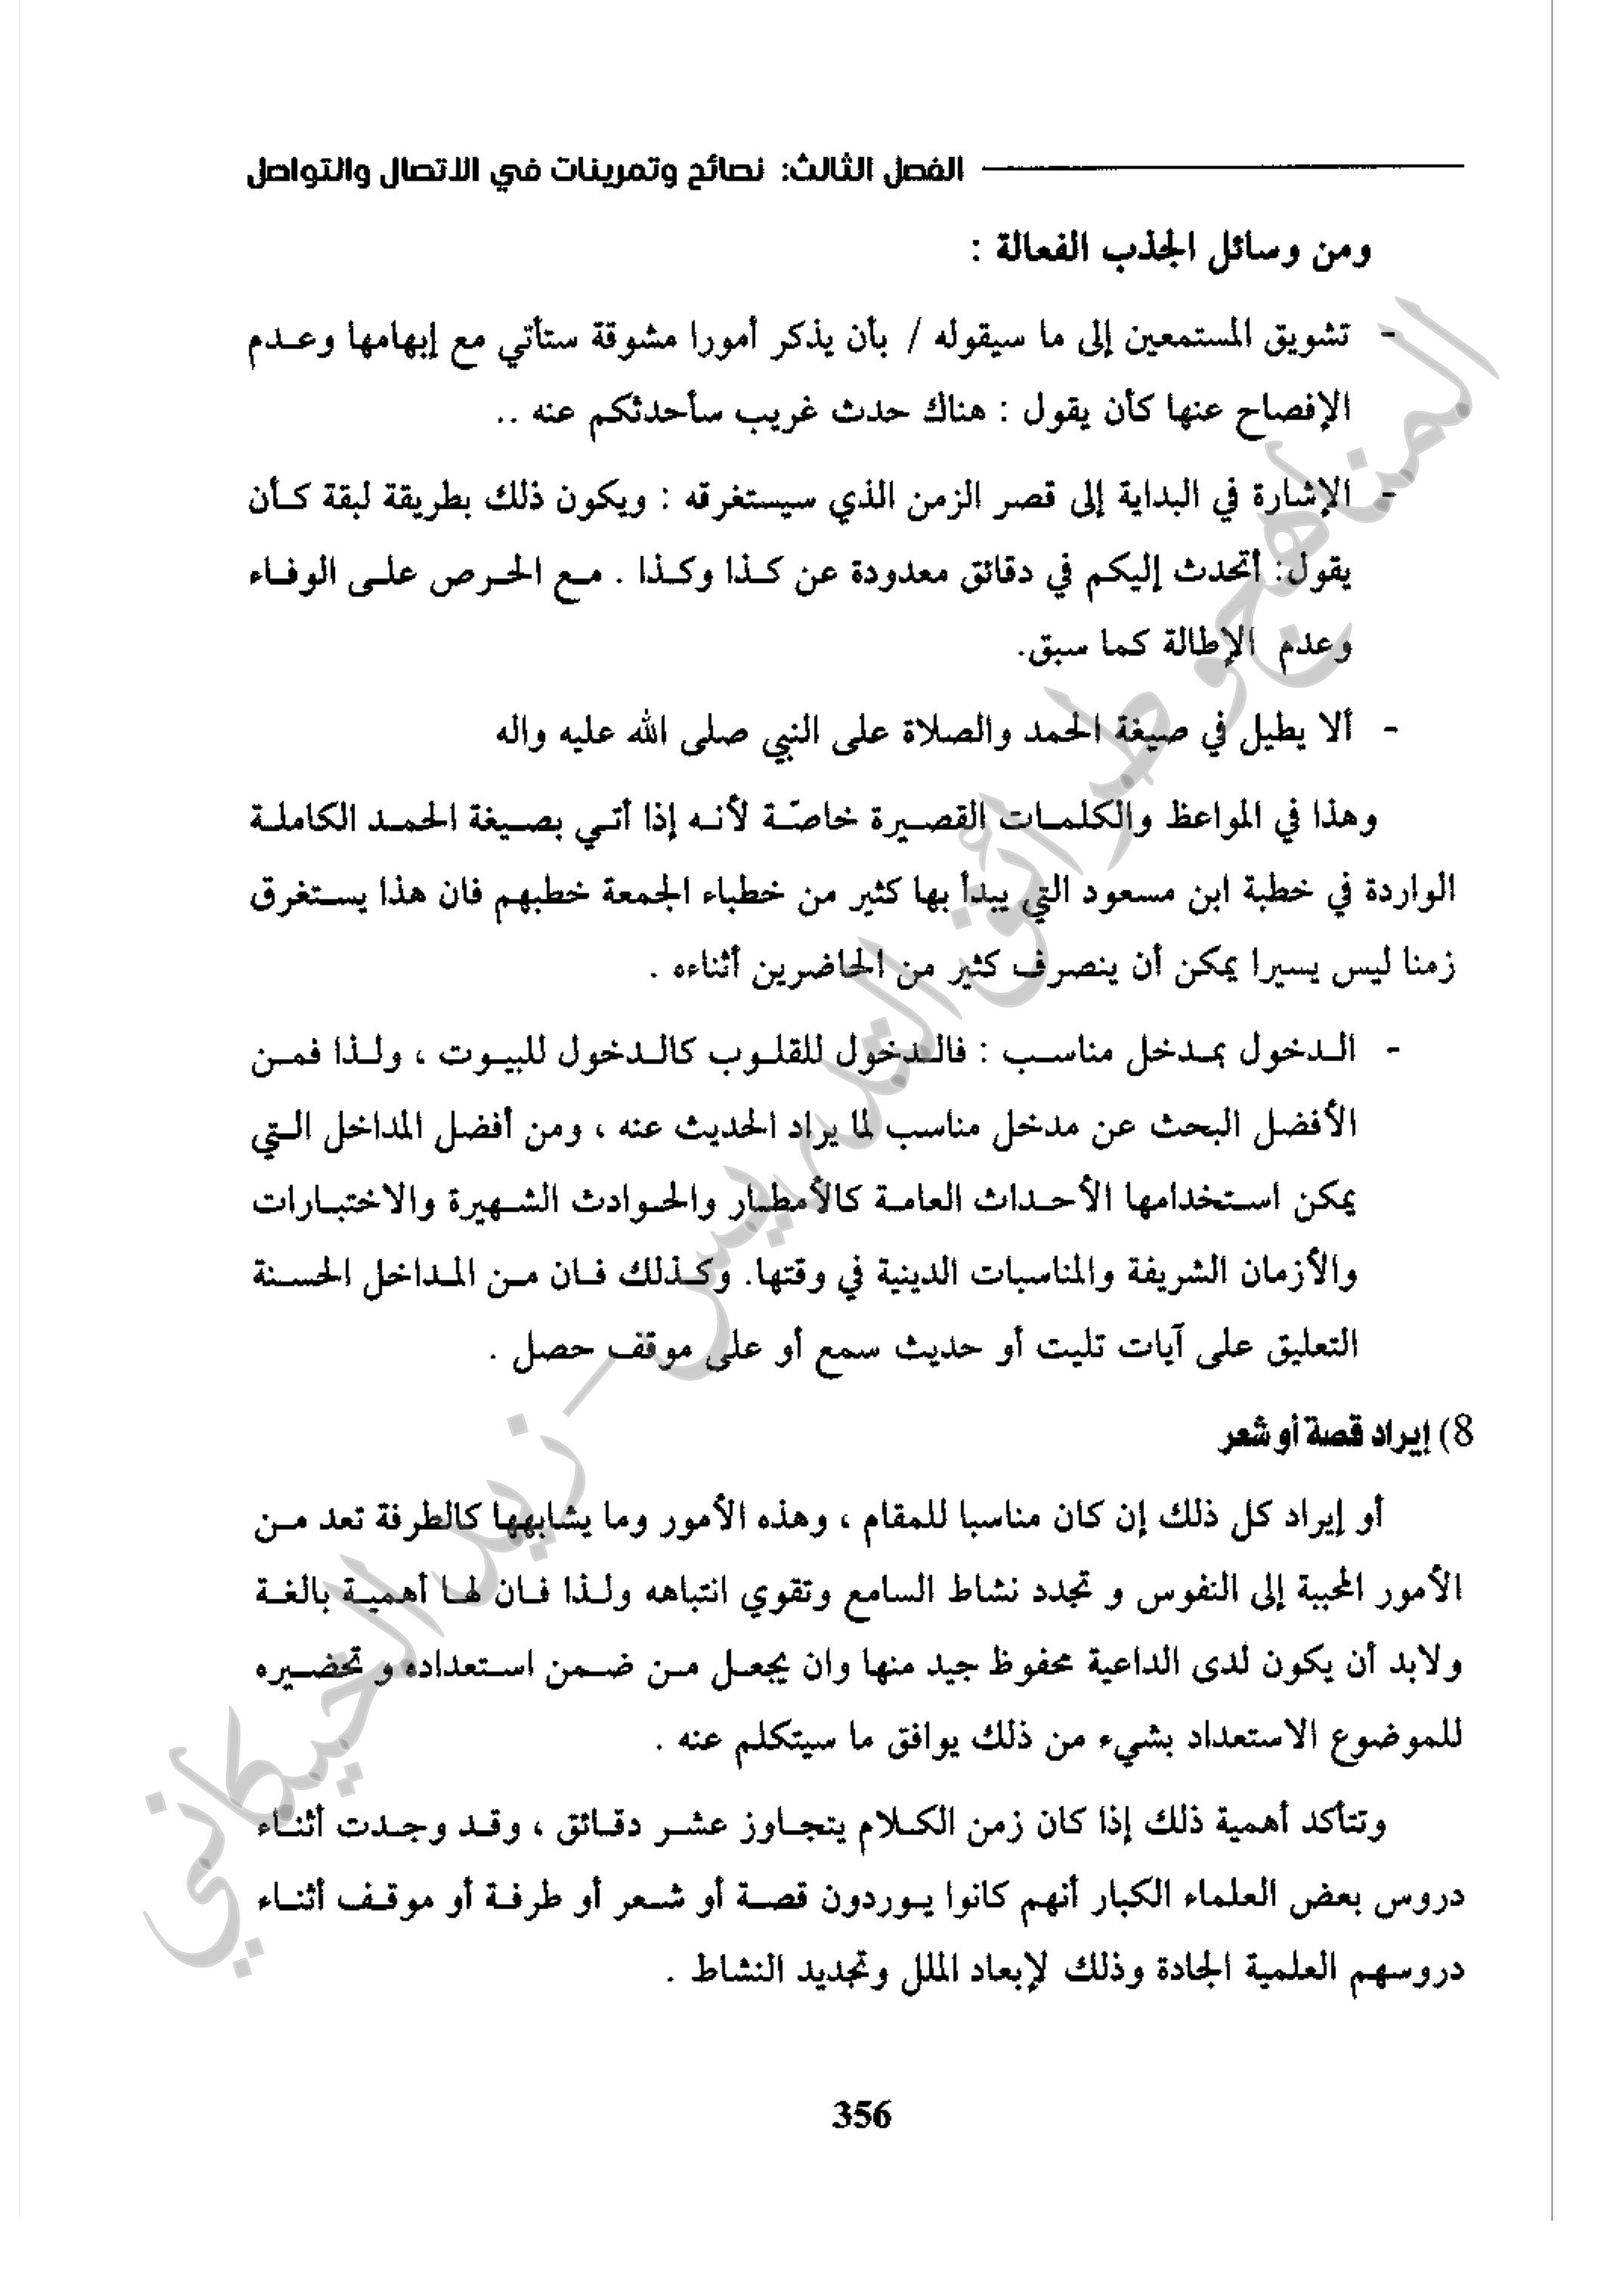 الفصل الثالث: نصائح وتمرينات في الاتصال والتواصل
ومن وسائل الجذب الفعالة :
- تشويق المستمعين إلى ما سيقوله / بأن يذكر أمورا مشوقة ستأتي مع إبهامها وعدم
الإفصاح عنها كأن يقول : هناك حدث غريب سأحدثكم عنه ..
- الإشارة في البداية إلى قصر الزمن الذي سيستغرقه : ويكون ذلك بطريقة لبقة كأن
يقول: أتحدث إليكم في دقائق معدودة عن كذا وكذا . مع الحرص على الوفاء
وعدم الإطالة كما سبق.
- ألا يطيل في صيغة الحمد والصلاة على النبي صلى الله عليه واله
وهذا في المواعظ والكلمات القصيرة خاصّة لأنه إذا أتي بصيغة الحمد الكاملة
الواردة في خطبة ابن مسعود التي يبدأ بها كثير من خطباء الجمعة خطبهم فان هذا يستغرق
زمنا ليس يسيرا يمكن أن ينصرف كثير من الحاضرين أثناءه .
- الدخول بمدخل مناسب : فالدخول للقلوب كالدخول للبيوت ، ولذا فمن
الأفضل البحث عن مدخل مناسب لما يراد الحديث عنه ، ومن أفضل المداخل التي
يمكن استخدامها الأحداث العامة كالأمطار والحوادث الشهيرة والاختبارات
والأزمان الشريفة والمناسبات الدينية في وقتها. وكذلك فان من المداخل الحسنة
التعليق على آيات تليت أو حديث سمع أو على موقف حصل .
8) إيراد قصة أو شعر
أو إيراد كل ذلك إن كان مناسبا للمقام ، وهذه الأمور وما يشابهها كالطرفة تعد من
الأمور المحببة إلى النفوس و تجدد نشاط السامع وتقوي انتباهه ولذا فان لها أهمية بالغة
ولابد أن يكون لدى الداعية محفوظ جيد منها وان يجعل من ضمن استعداده و تحضيره
للموضوع الاستعداد بشيء من ذلك يوافق ما سيتكلم عنه .
وتتأكد أهمية ذلك إذا كان زمن الكلام يتجاوز عشر دقائق ، وقد وجدت أثناء
دروس بعض العلماء الكبار أنهم كانوا يوردون قصة أو شعر أو طرفة أو موقف أثناء
دروسهم العلمية الجادة وذلك لإبعاد الملل وتجديد النشاط .
356
المناهج وطرائق التدريس - زيد الخيكاني